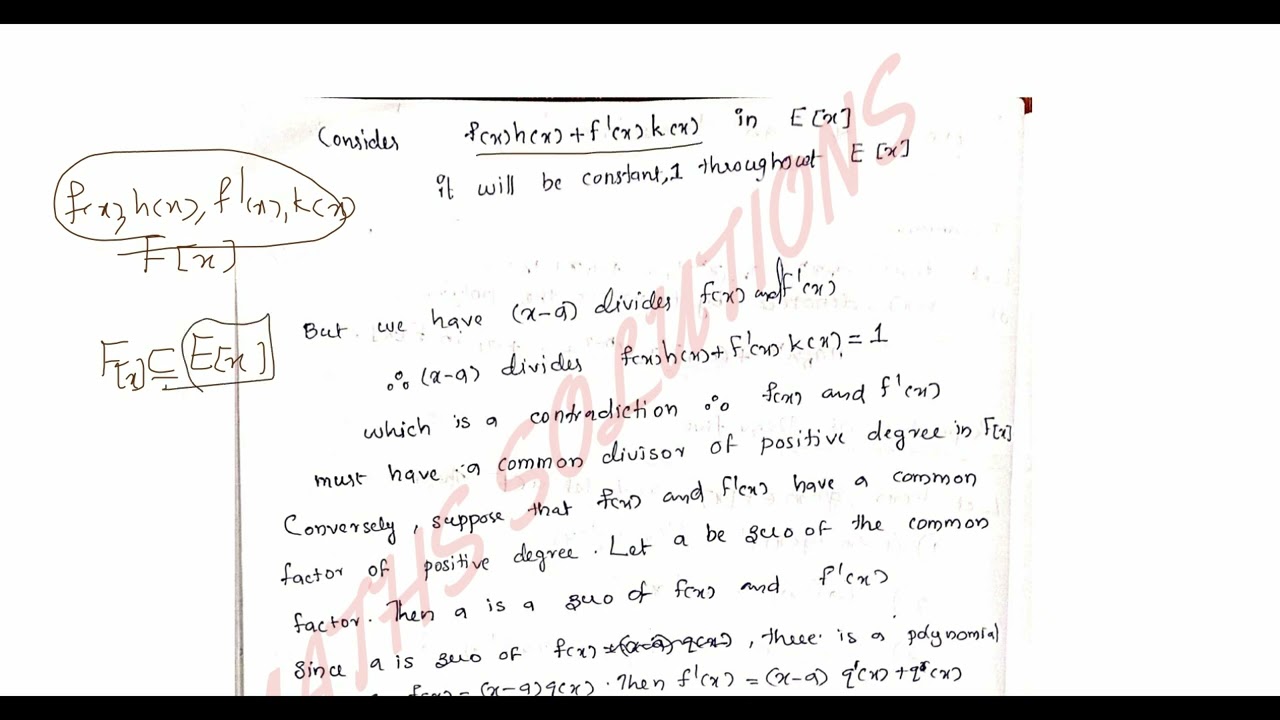 Consider f(x)h(x)+f'(x)k(x) in E[x]
it will be constant,1 throughout E[x]
f(x),h(x),f'(x),k(x)
F[x]
But we have (x-a) divides f(x) and f'(x)
F[x]⊆E[x]
∴ (x-a) divides f(x)h(x)+f'(x)k(x)=1
which is a contradiction ∴ f(x) and f'(x)
must have a common divisor of positive degree in F[x]
Conversely, suppose that f(x) and f'(x) have a common
factor of positive degree. Let a be zero of the common
factor. Then a is a zero of f(x) and f'(x)
Since a is zero of f(x), there is a polynomial
f(x)=(x-a)q(x). Then f'(x)=(x-a)q'(x)+q(x)
MATHS SOLUTIONS